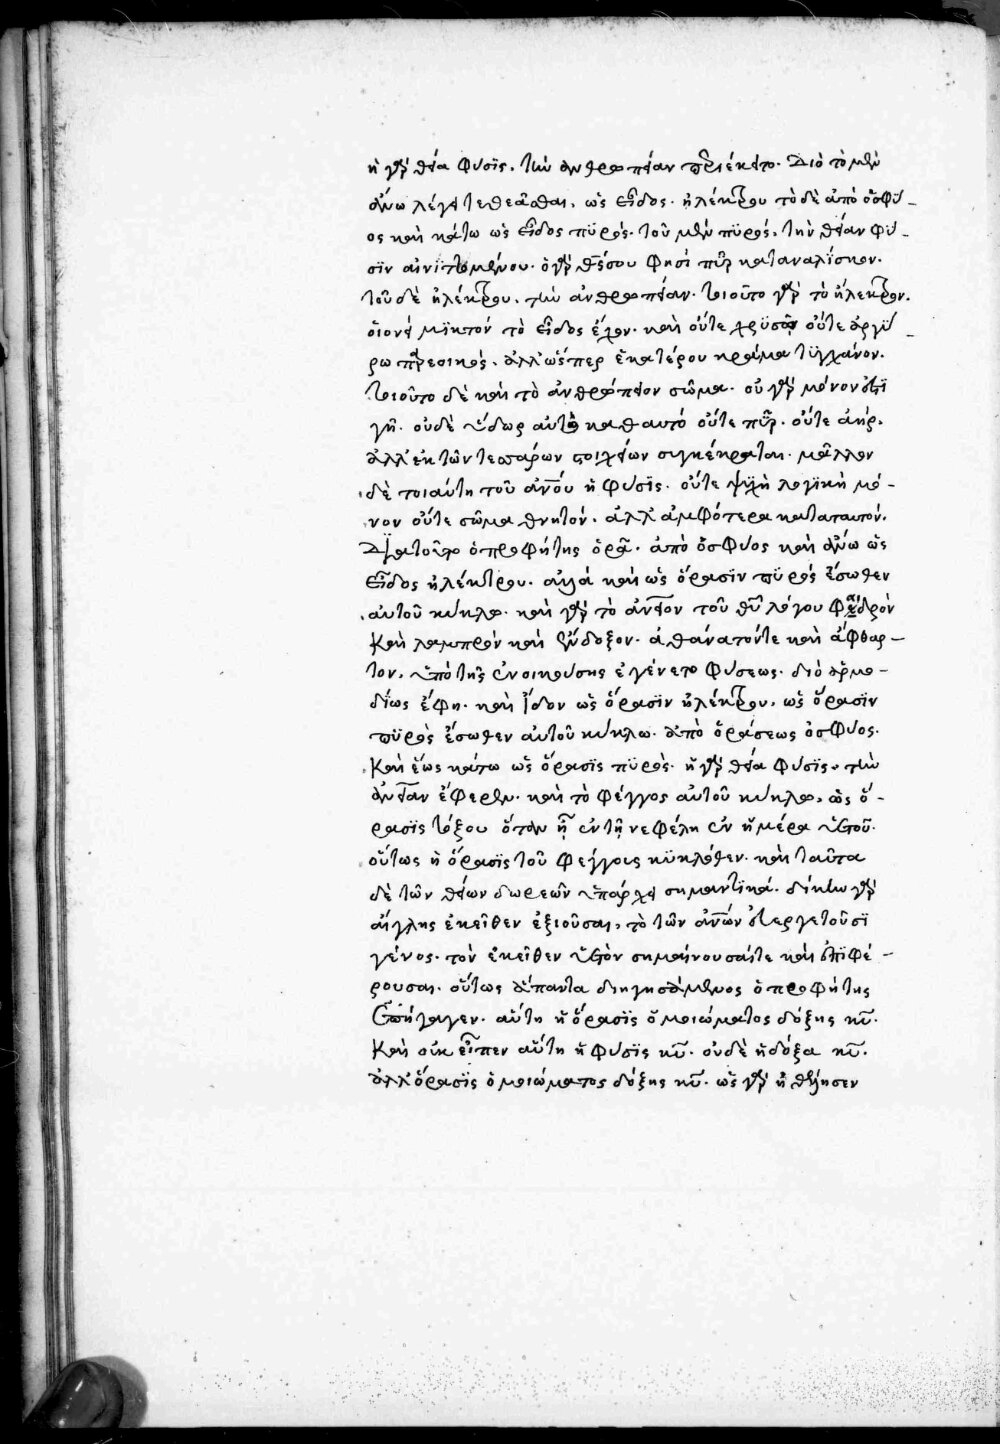 ἡ γὰρ θεία φύσϊς, τὴν ἀνθρωπείαν περιέκειτο. Διὸ τὸ μὲν
ἄνω λέγει τεθεᾶσθαι, ὡς εἶδος ἠλέκτρου τὸ δὲ ἀπὸ ὀσφύ-
ος καὶ κάτω ὡς εἶδος πϋρός. τοῦ μὲν πϋρός, τὴν θείαν φύ-
σϊν αἰνϊττομένου. ὁ γὰρ θεός σου φησὶ πῦρ καταναλΐσκον.
τοῦ δὲ ἠλέκτρου, τὴν ἀνθρωπείαν. τοιοῦτο γὰρ τὸ ἤλεκτρον.
οἱονεὶ μϊκτόν τὸ εἶδος ἔχον. καὶ οὔτε χρϋσῷ οὔτε ἀργύ-
ρω προσεοικός. ἀλλ' ὥσπερ ἑκατέρου κράμα τϋγχάνον.
τοιοῦτο δὲ καὶ τὸ ἀνθρώπειον σῶμα. οὐ γὰρ μόνον ἐστϊ
γῆ. οὐδὲ ὕδωρ αὐτὸ καθαυτό οὔτε πῦρ. οὔτε ἀήρ.
ἀλλ' ἐκ τῶν τεσσάρων στοιχείων συγκέκραται. μᾶλλον
δὲ τοιαύτη τοῦ ἀνου ἡ φύσϊς. οὔτε ψϋχὴ λογϊκὴ μό-
νον οὔτε σῶμα θνητόν. ἀλλ' ἀμφότερα καταταυτόν.
Δϊατοῦτο ὁ προφήτης ὁρᾶ. ἀπὸ ὀσφύος καὶ ἄνω ὡς
εἶδος ἠλέκτρου. ἀλλά καὶ ὡς ὅρασϊν πϋρός ἔσωθεν
αὐτοῦ κύκλω. καὶ γὰρ τὸ ἀνειον τοῦ θυ λόγου φαιδρὸν
Καὶ λαμπρὸν καὶ ἔνδοξον. ἀθάνατόντε καὶ ἄφθαρ-
τον, ὑπὸ τῆς ἐνοικούσης ἐγένετο φύσεως. διὸ ἁρμο-
δίως ἔφη. καὶ ἶδον ὡς ὅρασϊν ἠλέκτρου, ὡς ὅρασϊν
πϋρὸς ἔσωθεν αὐτοῦ κύκλω. ἀπὸ ὁράσεως ὀσφύος.
Καὶ ἕως κάτω ὡς ὅρασϊς πϋρὸς. ἡ γὰρ θεία φύσϊς, τὴν
ἀνειαν ἔφερεν. καὶ τὸ φέγγος αὐτοῦ κύκλω, ὡς ὅ-
ρασϊς τόξου ὅταν ἦ ἐν τῆ νεφέλη ἐν ἡμέρα ὑετοῦ.
οὕτως ἡ ὅρασϊς τοῦ φέγγους κϋκλόθεν. καὶ ταῦτα
δὲ τῶν θείων δωρεῶν ὑπάρχει σημαντϊκά. δίκην γὰρ
αἴγλης ἐκεῖθεν ἐξιοῦσαι, τὸ τῶν ἀνων εὐεργετοῦσϊ
γένος. τὸν ἐκεῖθεν ὑετὸν σημαίνουσαίτε καὶ ἐπϊφέ-
ρουσαι. οὕτως ἅπαντα διηγησάμενος ὁ προφήτης
ἐπήγαγεν. αὕτη ἡ ὅρασϊς ὁμοιώματος δόξης κυ.
Καὶ οὐκ εἶπεν αὕτη ἡ φύσϊς κυ. οὐδὲ ἡ δόξα κυ.
ἀλλ' ὅρασϊς ὁμοιώματος δόξης κυ. ὡς γὰρ ἠθέλησεν